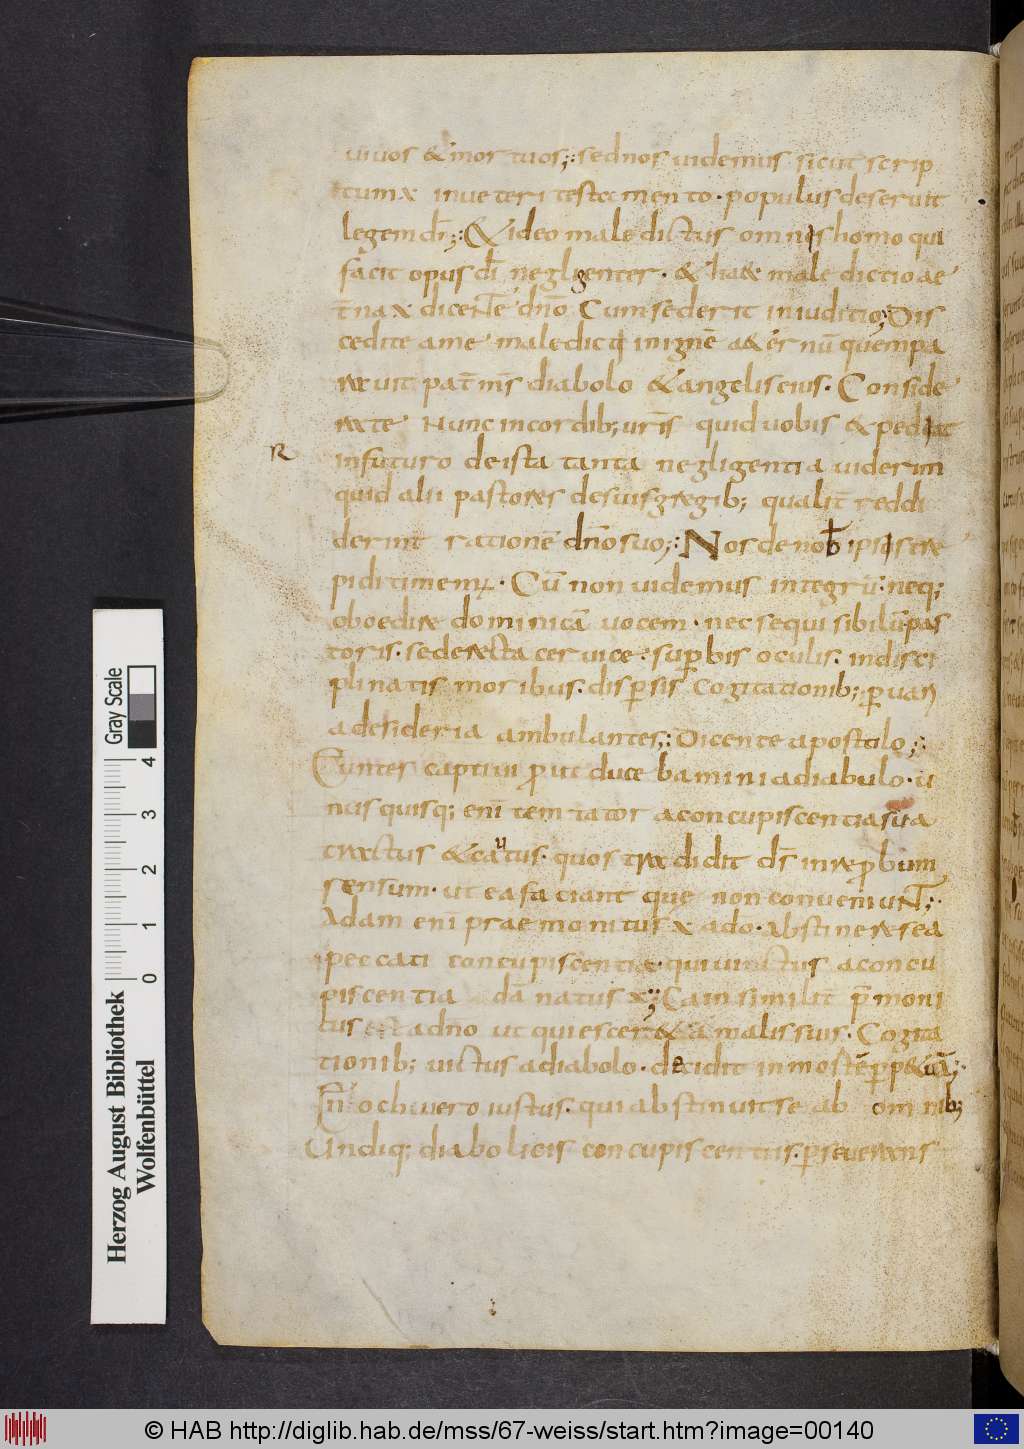 uiuos & mortuos;: sed nos uidemus sicut scrip
tum inueteri testamento · populus deseruit
legem dī;: & ideo male dictus omnis homo qui
facit opus dī neglegenter · & haec male dictio ae
t̄na dicente dn̄o Cum sederit iniuditio; Dis
cedite ame maledicti inignē a&ernū quem pa
rauit pat̄ m̄s diabolo & angelis eius · Conside
rate Nunc incordib; ur̄is quid uobis & ped
R
infuturo deista tanta negligentia uiderim
quid alii pastores desuis gregib; qualit̄ reddi
derint rationē dn̄o suo;: Nos de nob̄ ipsis tre
pidi timem · Cū non uidemus integrū: neq;
oboedire dominicā uocem · nec sequi sibilū pas
toris · sed erecta ceruice: sup̄bis oculis · indisci
plinatis moribus · disp̄sis cogitationib; p̄ uari
a desideria ambulantes;: Dicente apostolo;:
captiui duce bamini adiabulo · u
nus quisq; enī temtator aconcupiscentia sua
tractus & captus · quos tradidit ds̄ inrep̄bum
sensum · ut ea faciant que non conueniunt;·
Adam enī prae monitus ado · abstinere rea
peccati concupiscentia · qui uictus aconcu
piscentia dā natus Cain similit̄ p̄moni
tus adn̄o ut quiescer& a malis suis · Cogita
tionib; uictus adiabolo · decidit inmortē p̄p&uā;·
uero iustus · qui abstinuit se ab omnib;
Undiq; diabolicis concupiscentiis · p̄seuerans
Gray Scale
4
3
2
1
0
Herzog August Bibliothek
Wolfenbüttel
© HAB http://diglib.hab.de/mss/67-weiss/start.htm?image=00140